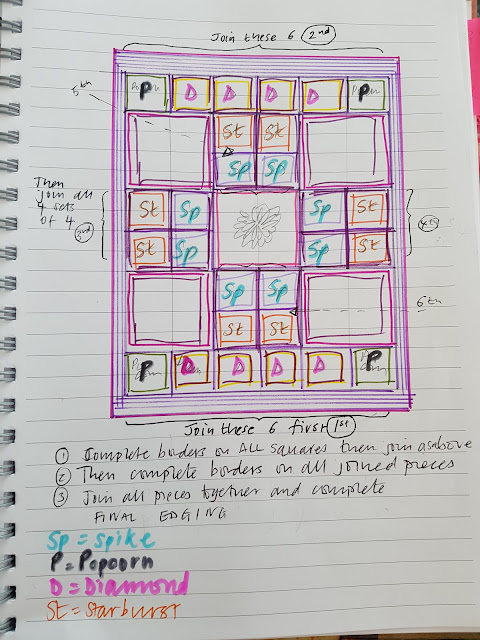 Join these 6 2nd
5th
P D D D D P
St St
Sp Sp
Then
join all
4 sets
of 4
3rd
St Sp Sp St
St Sp Sp St
4th
Sp Sp
St St
6th
P D D D D P
Join these 6 first 1st
① Complete borders on ALL squares then join as above
② Then complete borders on all joined pieces
③ Join all pieces together and complete
FINAL EDGING
Sp = spike
P = Popcorn
D = Diamond
St = starburst